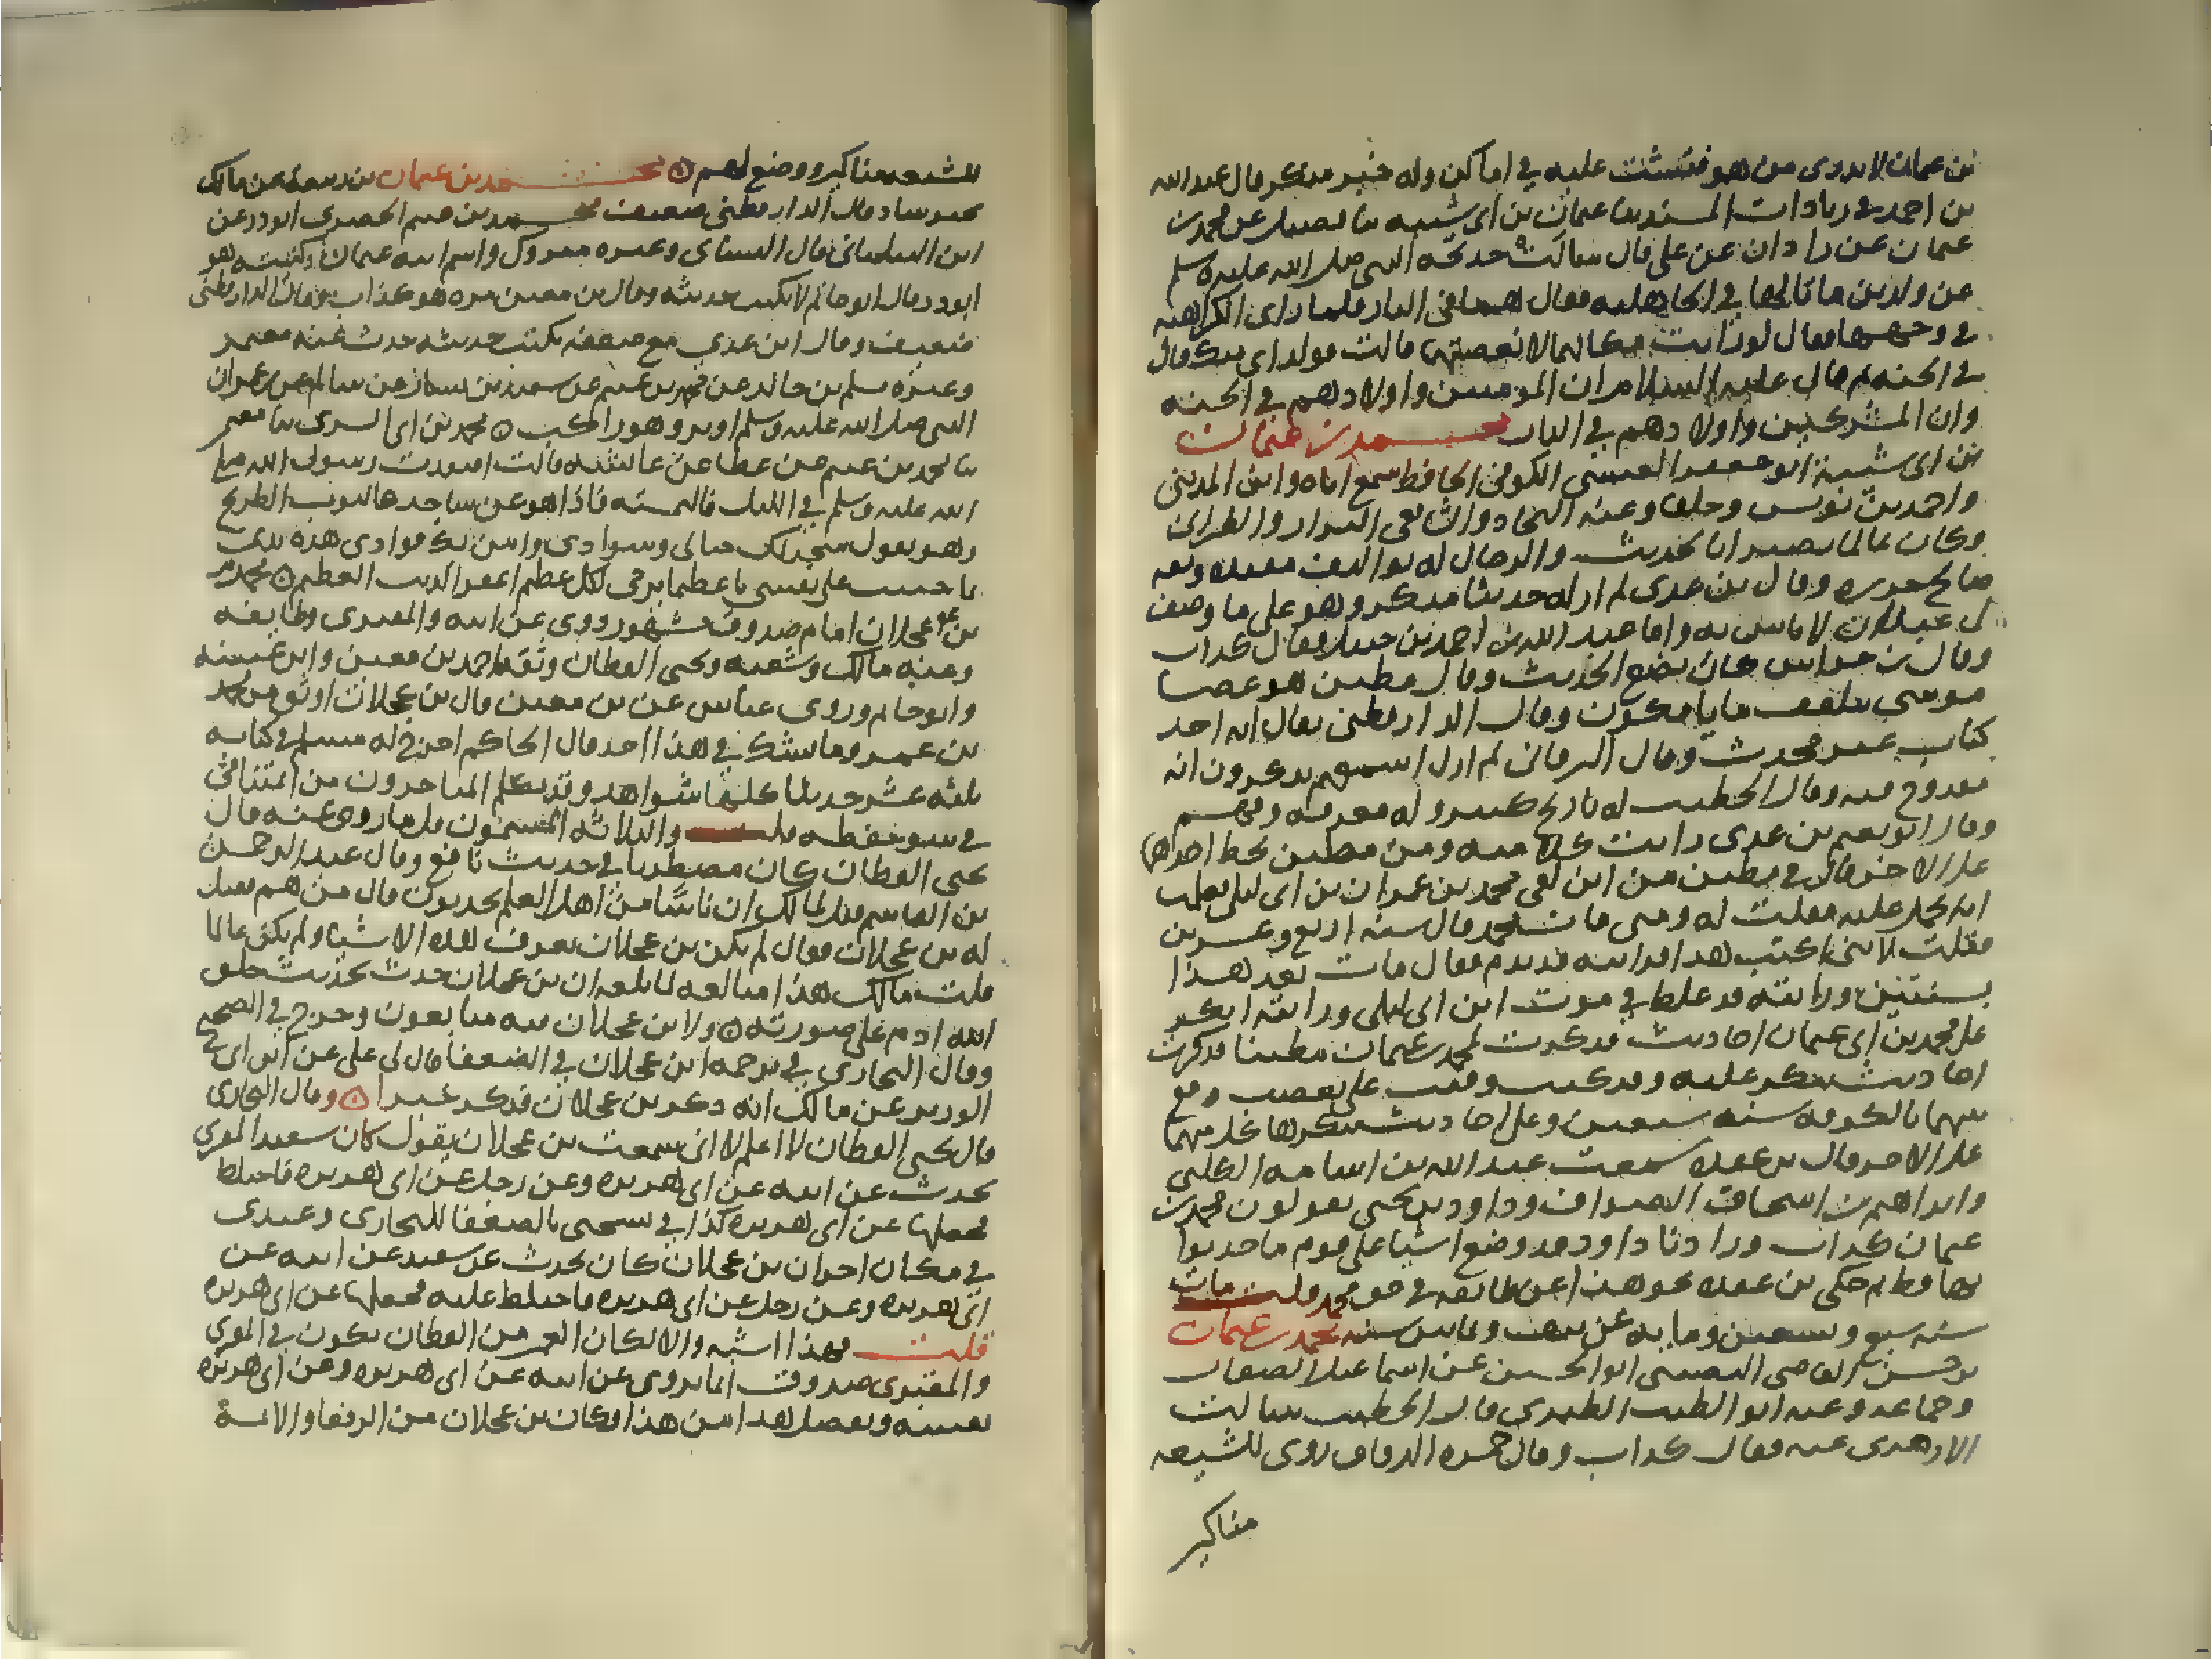 بن عمان لا يدرى من هو فتشت عليه في اماكن وله خبر منكر قال عبد الله
بن احمد في زيادات المسند ثنا عثمان بن ابي شيبه ثنا بن فضيل عن محمد بن
عثمان عن زاذان عن علي قال سالت خديجة النبي صلى الله عليه وسلم
عن ولدين ماتا لها في الجاهليه فقال هما في النار فلما راى الكراهيه
في وجهها فقال لو رايت مكانهما لابغضتهما قالت فولداي منك قال
في الجنه ثم قال عليه السلام ان المومنين واولادهم في الجنه
وان المشركين واولادهم في النار محمد بن عثمان
بن ابي شيبة ابو جعفر العبسي الكوفي الحافظ سمع اباه وابن المديني
واحمد بن يونس وخلق وعنه النجاد والشافعي البزار والطبراني
وكان عالما بصيرا بالحديث والرجال له تواليف مفيده وثقه
صالح جزره وقال بن عدي لم ار له حديثا منكرا وهو على ما وصف
لي عبدان لا باس به واما عبد الله بن احمد بن حنبل فقال كذاب
وقال بن خراش كان يضع الحديث وقال مطين هو عصا
موسى تلقف ما يافكون وقال الدارقطني يقال انه اخذ
كتاب غير محدث وقال البرقاني لم ازل اسمعهم يذكرون انه
مقدوح فيه وقال الخطيب له تاريخ كبير وله معرفه وفهم
وقال ابو نعيم بن عدي رايت كلا منه ومن مطين يحط احدهما
على الاخر قال لي مطين من اين لقي محمد بن عمران بن ابي ليلى فعلمت
انه يحمل عليه فقلت له ومتى مات محمد قال سنه اربع وعشرين
فقلت لابني اكتب هذا فرايته قد ندم فقال مات بعد هذا
بسنتين ورايته قد غلط في موت ابن ابي ليلى ورايته انكر
على محمد بن ابي عثمان احاديث فذكرت لمحمد بن عثمان مطينا فذكرت
احاديث ينكر عليه وقد كنت وقفت على تعصب وقع
بينهما بالكوفه سنه سبعين وعلى احاديث ينكرها كل منهما
على الاخر قال بن عقده سمعت عبد الله بن اسامه الكلبي
وابراهيم بن اسحاق الصواف وداود بن يحيى يقولون محمد بن
عثمان كذاب وزادنا داود قد وضع اشيا على قوم ما حدثوا
بها قط ثم حكى بن عقده نحو هذا عن طايفه في حق محمد قلت مات
سنه سبع وتسعين ومايه عن نيف وثمانين سنه محمد بن عثمان
بن حسن القاضي النصيبي ابو الحسين عن اسماعيل الصفار
وجماعه وعنه ابو الطيب الطبري قال الخطيب سالت
الازهري عنه فقال كذاب وقال حمزه الدقاق روى للشيعه
مناكير
للشيعه مناكير ووضع لهم محمد بن عثمان بن ربيعة عن مالك
بخبر ساد قال الدارقطني ضعيف محمد بن عثيم الحضرمي ابو ذر عن
ابن البيلماني قال النسائي وغيره متروك واسم ابيه عثمان وكنيته هو
ابو ذر قال ابو حاتم لا يكتب حديثه وقال بن معين مره هو كذاب وقال الدارقطني
ضعيف وقال ابن عدي مع ضعفه يكتب حديثه حدث عنه معتمر
وغيره سلم بن خالد عن محمد بن عثيم عن سعيد بن يسار عن سالم عن بن عمر ان
النبي صلى الله عليه وسلم اوتر وهو راكب محمد بن ابي السري ثنا معتمر
ثنا محمد بن عثيم عن عطا عن عائشه قالت افتقدت رسول الله صلى
الله عليه وسلم في الليل فالتمسته فاذا هو عن ساجد كالثوب الطريح
وهو يقول سجد لك خيالي وسوادي وامن بك فوادي هذه يدي
بما جنيت على نفسي يا عظيما يرجى لكل عظيم اغفر الذنب العظيم محمد
بن عجلان امام صدوق مشهور روى عن ابيه والمقبري وطايفه
وعنه مالك وشعبه ويحيى القطان وثقه احمد بن معين وابن عيينه
وابو حاتم وروى عباس عن بن معين قال بن عجلان اوثق من محمد
بن عمرو وما يشك في هذا احد قال الحاكم اخرج له مسلم في كتابه
ثلثه عشر حديثا كلها شواهد وقد تكلم المتاخرون من ائمتنا في
في سو حفظه قلت والثلاثه المسمون قلما روى عنه قال
يحيى القطان كان مضطربا في حديث نافع وقال عبد الرحمن
بن القاسم قيل لمالك ان ناسا من اهل العلم يحدثون قال من هم فقيل
له بن عجلان فقال لم يكن بن عجلان يعرف هذه الاشيا ولم يكن عالما
قلت مالك هذا قاله لما بلغه ان بن عجلان حدث بحديث خلق
الله ادم على صورته ولابن عجلان فيه متابعون وخرج في الصحيح
وقال البخاري في ترجمه ابن عجلان في الضعفا قال لي علي عن ابن ابي
الوزير عن مالك انه ذكر بن عجلان فذكر خيرا وقال البخاري
قال يحيى القطان لا اعلم الا اني سمعت بن عجلان يقول كان سعيد المقبري
يحدث عن ابيه عن ابي هريره وعن رجل عن ابي هريره فاختلط
فجعلها عن ابي هريره كذا في نسختي بالضعفا للبخاري وعندي
في مكان اخر ان بن عجلان كان يحدث عن سعيد عن ابيه عن
ابي هريره وعن رجل عن ابي هريره فاختلط عليه فجعلها عن ابي هريره
قلت فهذا اشبه والا لكان الغم من القطان يكون في المقبري
والمقبري صدوق انما يروي عن ابيه عن ابي هريره وعن ابي هريره
نفسه ويفصل هذا من هذا فكان بن عجلان من الرفعا والائمة